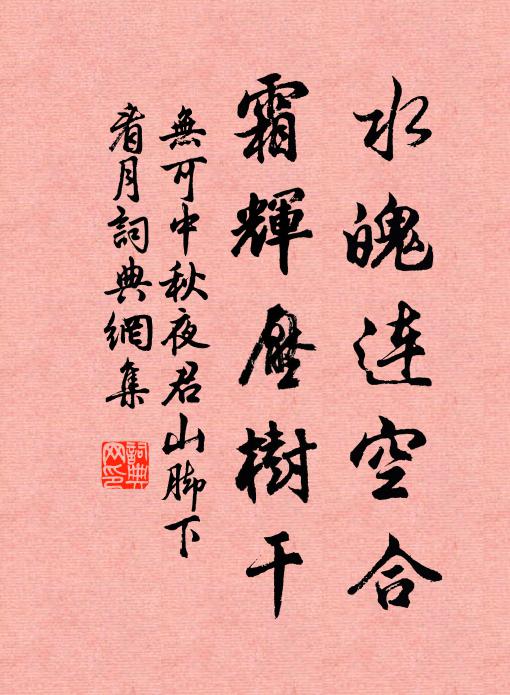 水魄连空合
霜輝壓樹干
無可中秋夜君山脚下
看月詞典網集
詞典
网印